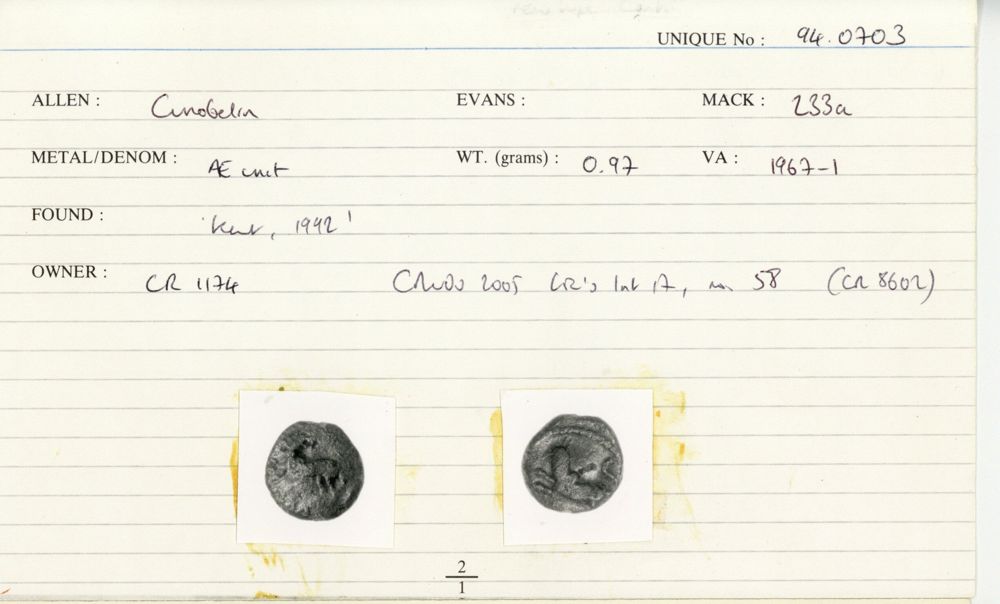 UNIQUE No : 94.0703
ALLEN : Cunobelin EVANS : MACK : 233a
METAL/DENOM : Æ unit WT. (grams) : 0.97 VA : 1967-1
FOUND : 'Kent, 1992'
OWNER : CR 1174 2005 CR's 17, 58 (CR 8602)
2
1